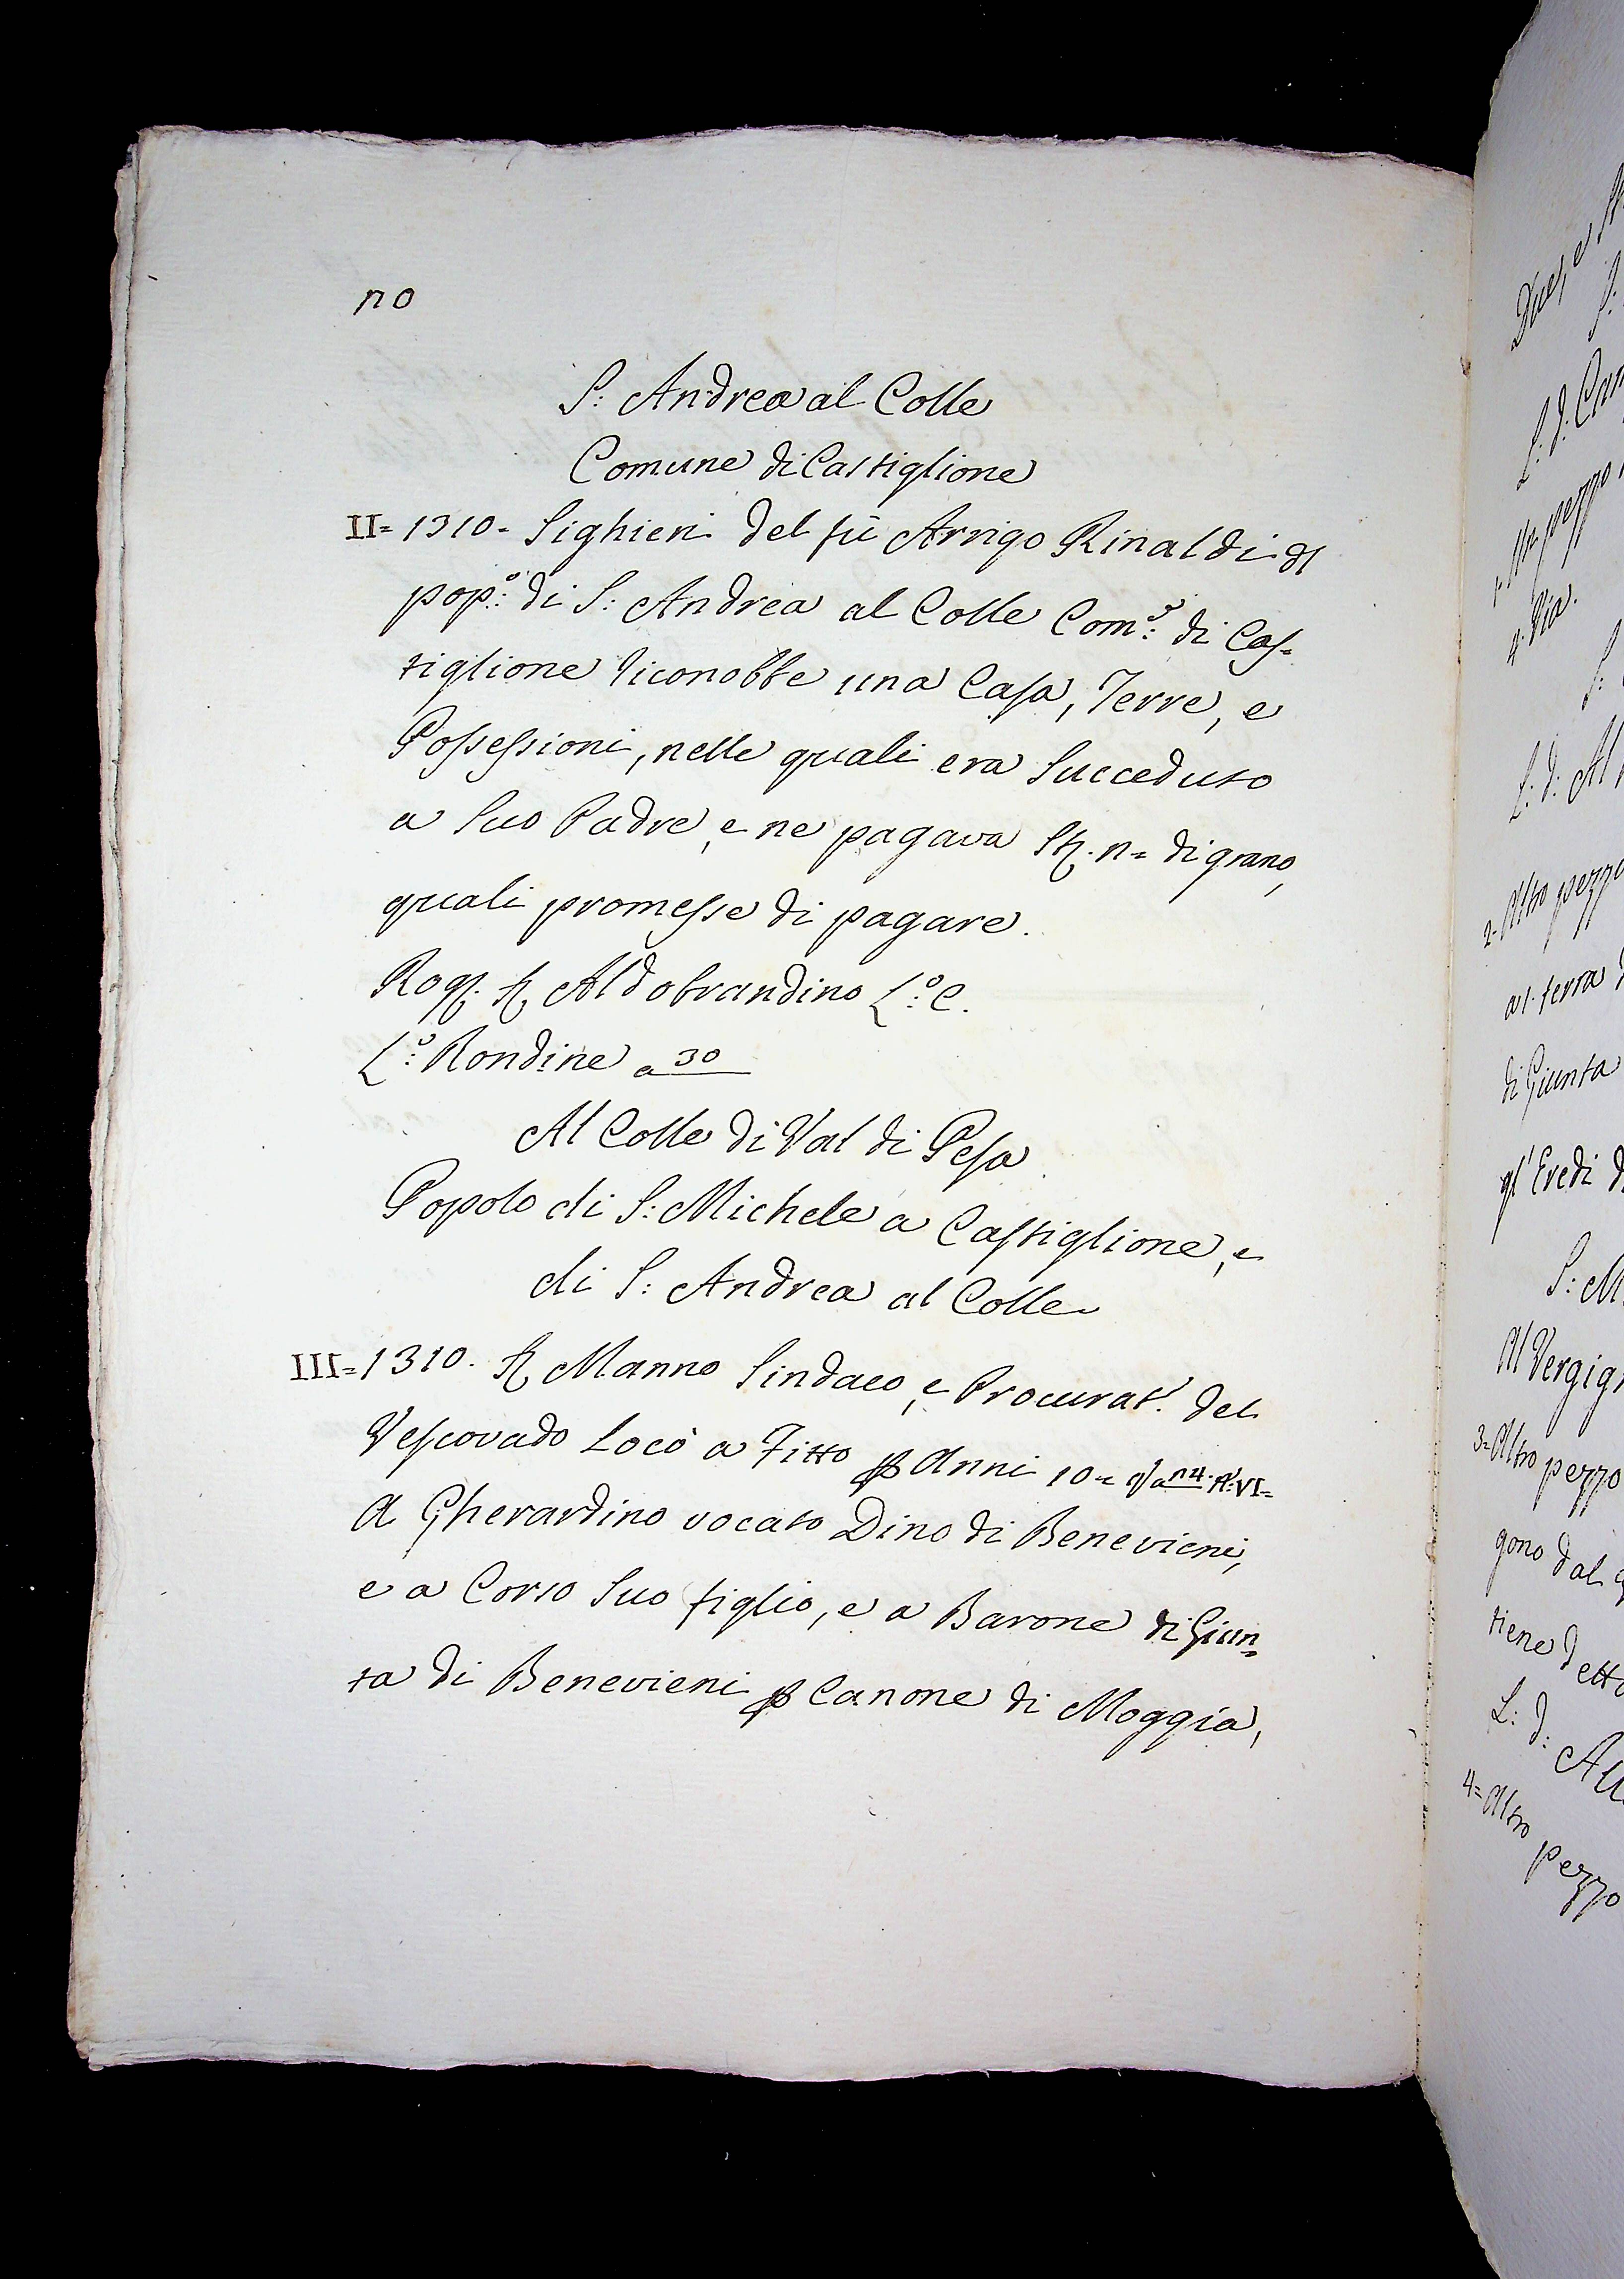 no
S: Andrea al Colle
Comune di Castiglione
II= 1310= Sighieri del fù Arrigo Rinaldi dl
pop:º di S: Andrea al Colle Com:e di Cas=
tiglione riconobbe una Casa, Terre, e
Possessioni, nelle quali era succeduto
a suo Padre, e ne pagava di grano,
quali promesse di pagare.
Rog. Aldobrandino L:º C.
L:º Rondine a 30
Al Colle di Val di Pesa
Popolo di S: Michele a Castiglione, e
di S: Andrea al Colle
III= 1310. Manno Sindaco, e Procurat.r del
Vescovado Locò a Fitto p Anni 10= VI=
A Gherardino vocato Dino di Benevieni,
e a Corso suo figlio, e a Barone di Giun=
ta di Benevieni p Canone di Moggia,
Due, e
L: d: Cam
1= Un pezzo
4: Via.
L: d: Al
2= Altro pezzo
al: terra
di Giunta
gl' Eredi d
S: M
Al Vergign
3= Altro pezzo
gono dal
tiene detto
L: d: All
4= Altro pezzo